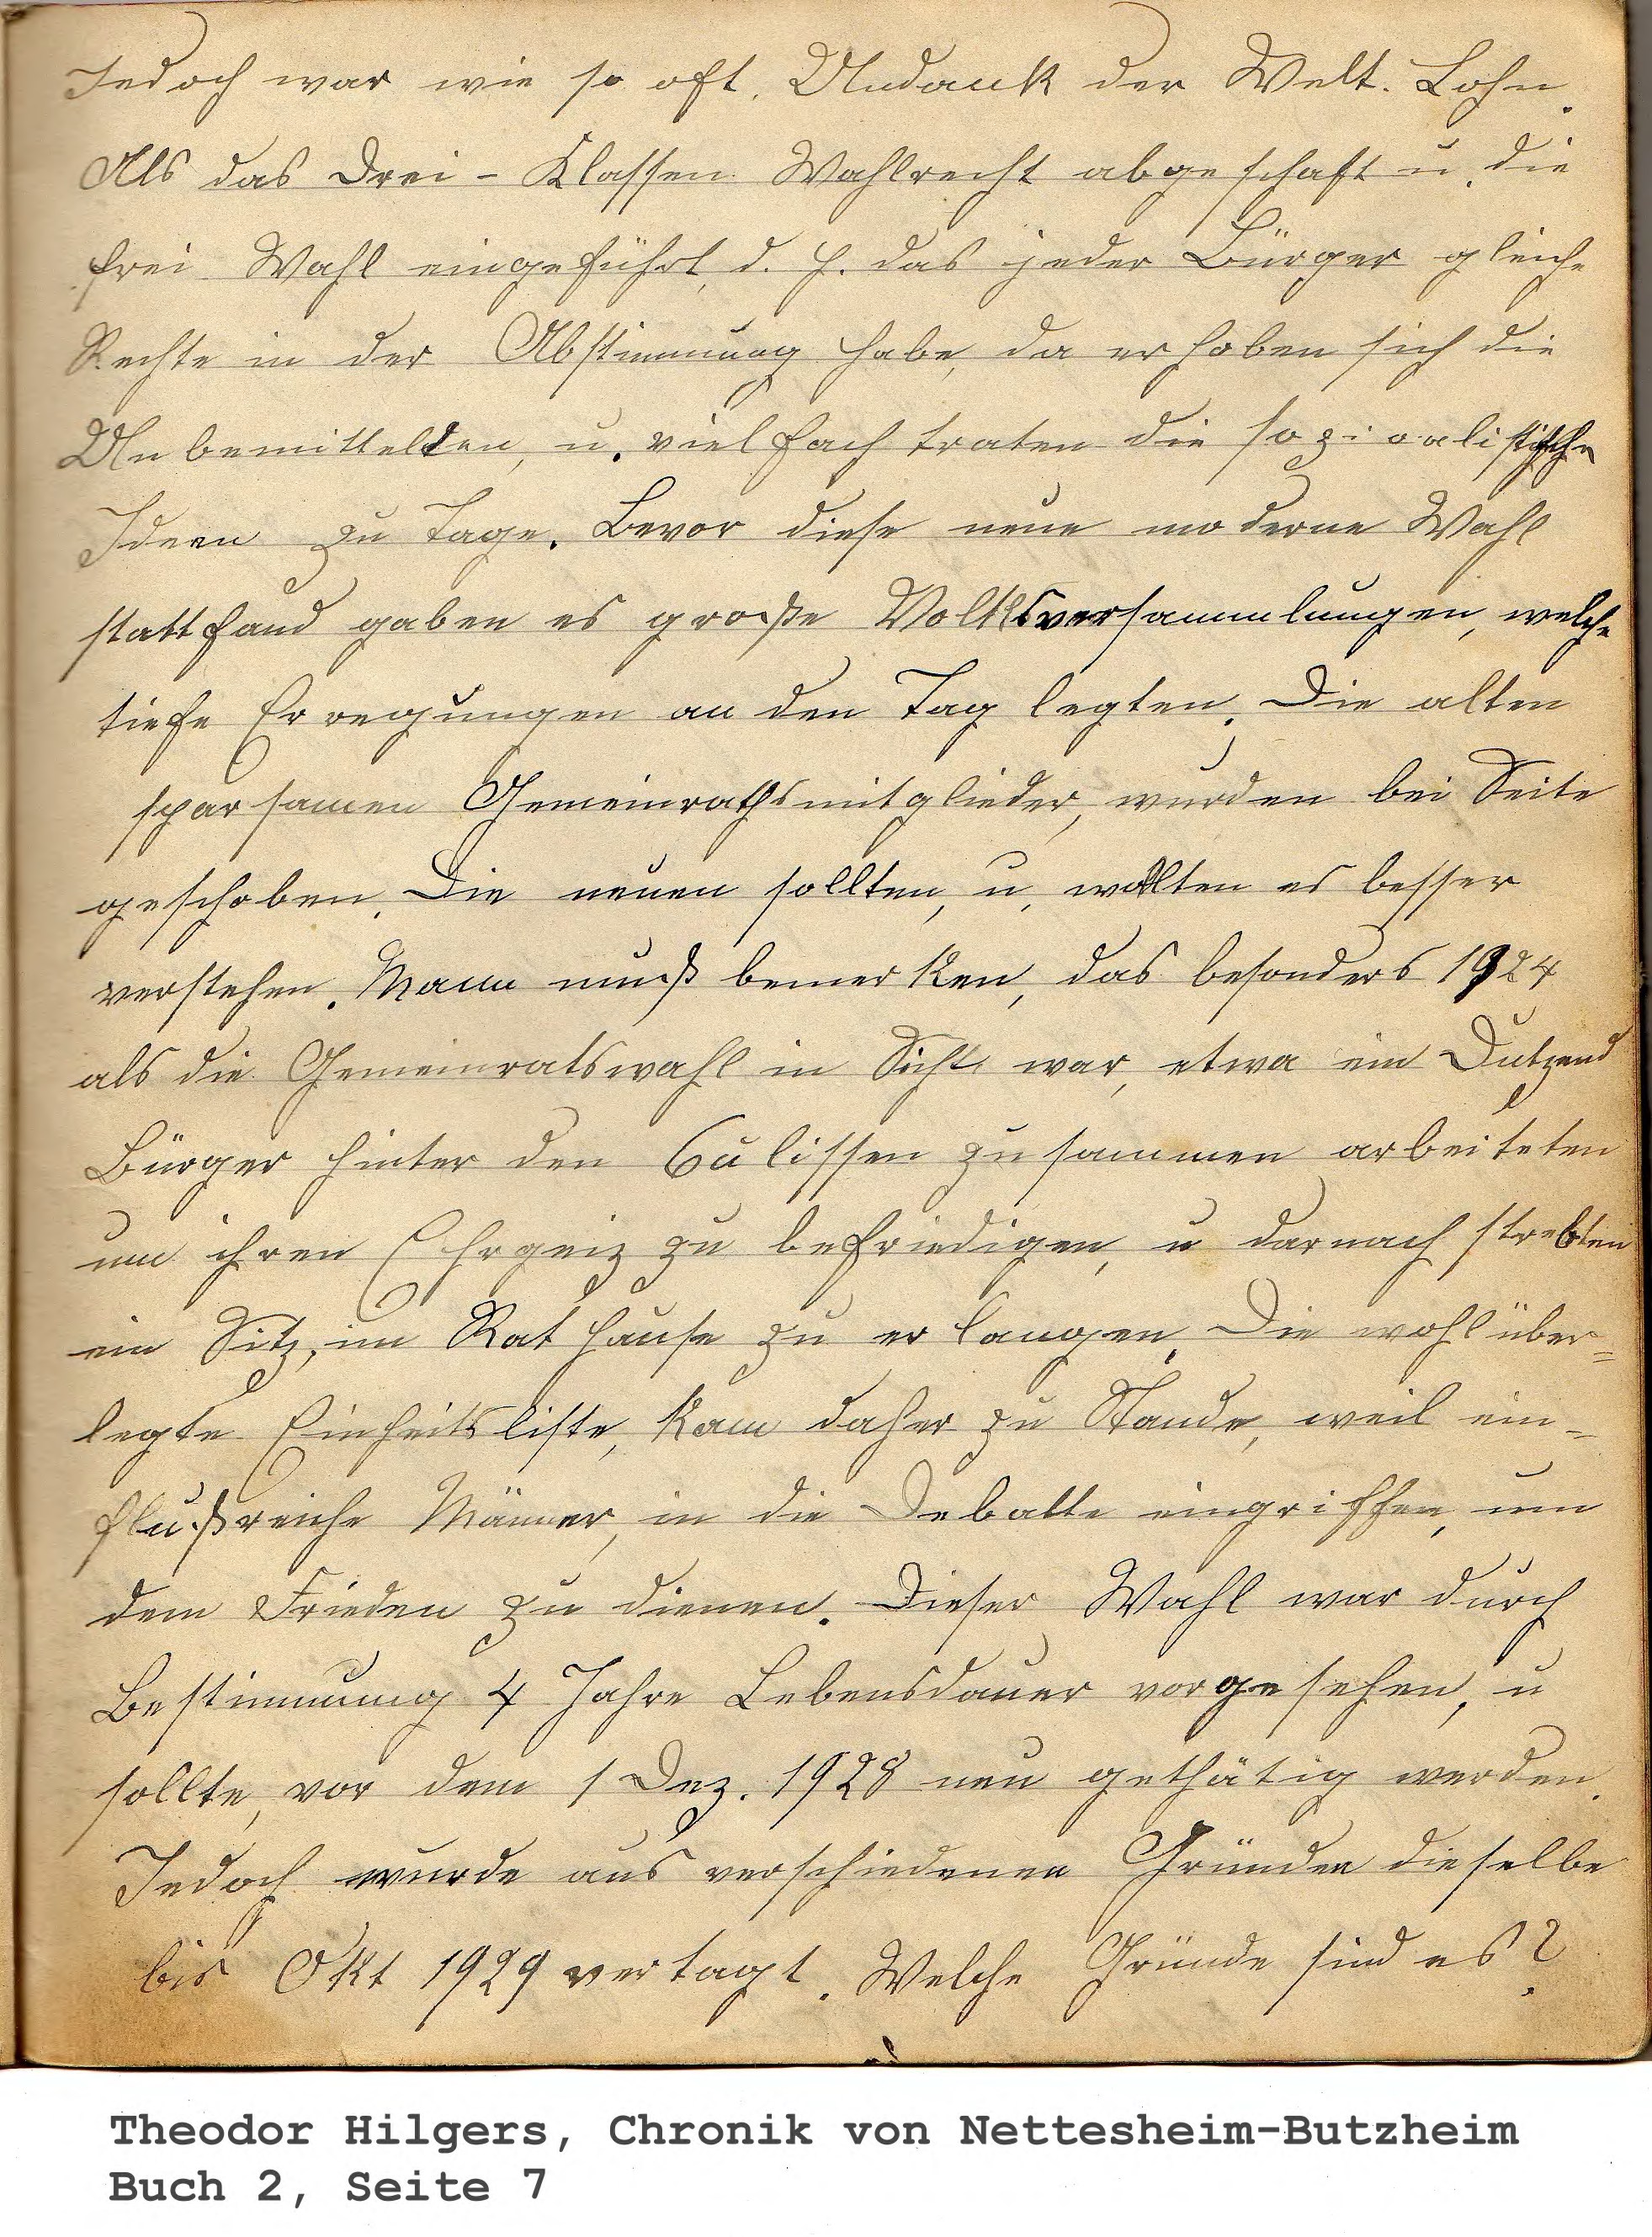 Jedoch war wie so oft, Undank der Welt. Lohn.
Als das Drei - Klassen Wahlrecht abgeschaft u. die
frei Wahl eingeführt, d. h. das jeder Bürger gleiche
Rechte in der Abstimmung habe, da erhoben sich die
Unbemittelden, u. vielfach traten die sozialistische
Ideen zu Tage. Bevor diese neue moderne Wahl
stattfand gaben es große Volksversammlungen, welche
tiefe Erregungen an den Tag legten. Die alten
sparsamen Gemeinrathsmitglieder, wurden bei Seite
geschoben. Die neuen sollten, u. wollten es besser
verstehen. Mann muß bemerken, das besonders 1924
als die Gemeinratswahl in Sicht war, etwa ein Dutzend
Bürger hinter den Culissen zusammen arbeiteten
um ihren Ehrgeiz zu befriedigen, u darnach strebten
ein Sitz, im Rathause zu erlangen. Die wohl über=
legte Einheitsliste, kam daher zu Stande, weil ein=
flußreiche Männer, in die Debatte eingriffen, um
dem Frieden zu dienen. Dieser Wahl war durch
Bestimmung 4 Jahre Lebensdauer vorgesehen, u
sollte, vor dem 1 Dez. 1928 neu gethätig werden.
Jedoch wurde aus verschiedenen Gründen dieselbe
bis Okt 1929 vertagt. Welche Gründe sind es?
Theodor Hilgers, Chronik von Nettesheim-Butzheim
Buch 2, Seite 7